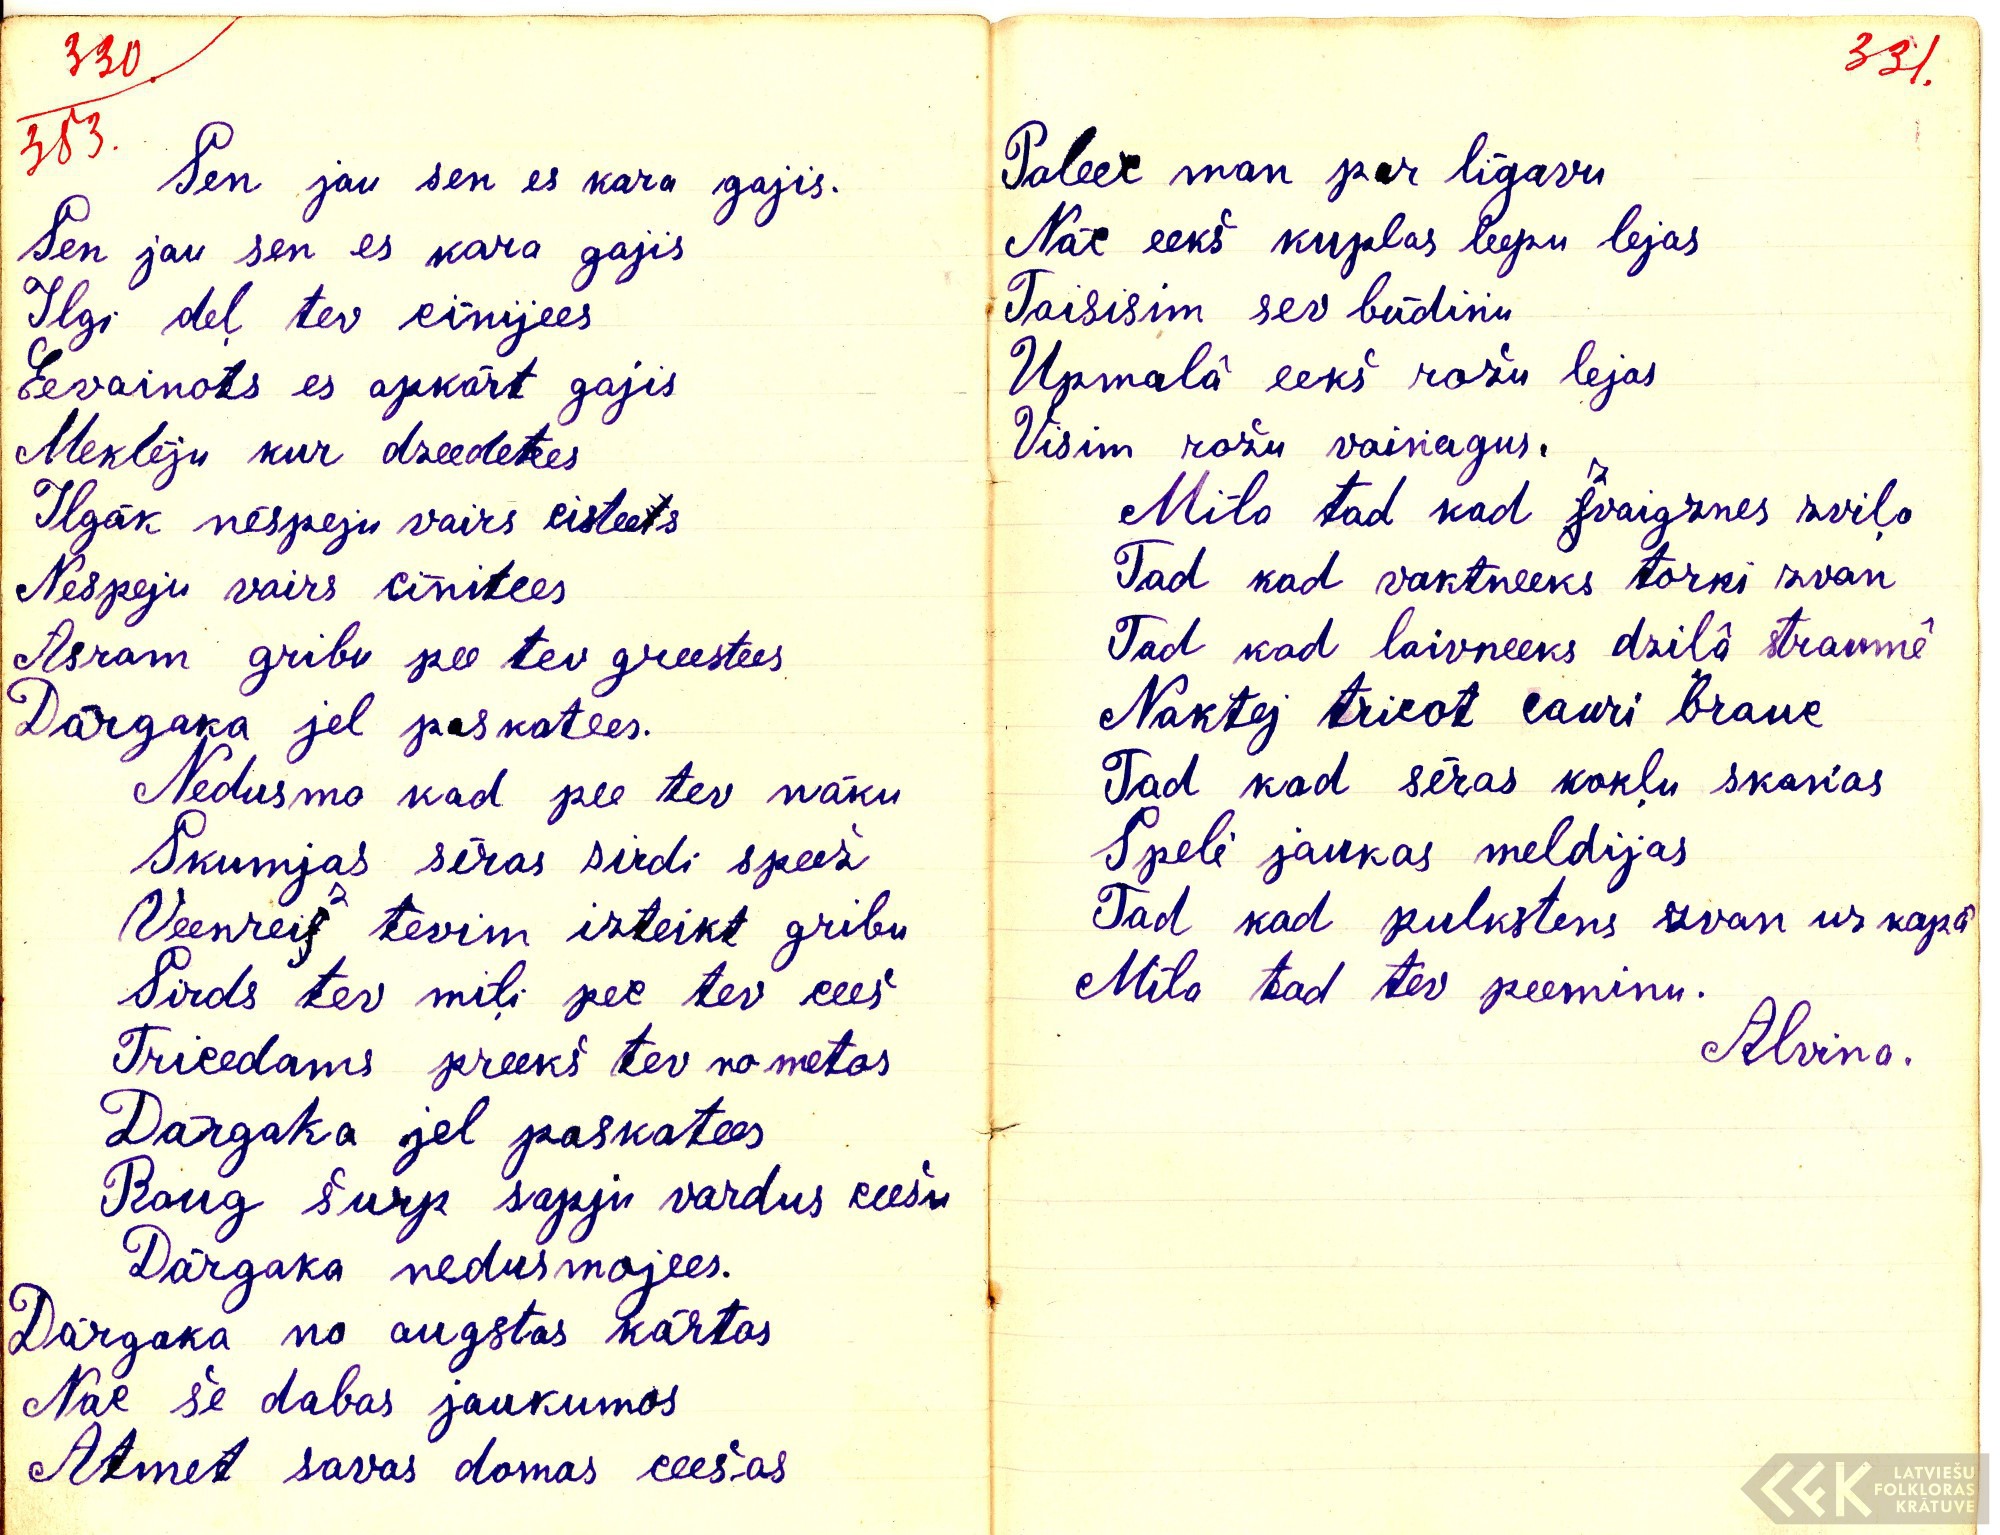 330.
383.
Sen jau sen es kara gajis.
Sen jau sen es kara gajis
Ilgi deļ tev cīnijees
Eevainots es apkārt gajis
Meklēju kur dzeedetees
Ilgāk nēspeju vairs cistees
Nespeju vairs cīnitees
Asram gribu pee tev greestees
Dārgaka jel paskatees.
Nedusmo kad pee tev nāku
Skumjas sēras sirdi speež
Veenreiz tevim izteikt gribu
Sirds tev miļi pec tev ceeš
Tricedams preekš tev nometas
Dārgaka jel paskatees
Raug šurp sapju vardus ceešu
Dārgaka nedusmojees.
Dārgaka no augstas kārtas
Nac še dabas jaukumos
Atmet savas domas ceešas
331.
Paleec man par līgavu
Nāc eekš kuplas leepu lejas
Taisisim sev būdiņu
Upmalâ eekš rožu lejas
Visim rožu vaiņagus.
Mīla tad kad zvaigznes zviļo
Tad kad vaktneeks torņi zvan
Tad kad laivneeks dzilâ straumê
Naktej tricot cauri brauc
Tad kad sēras kokļu skaņas
Spelē jaukas meldijas
Tad kad pulkstens zvan uz kapâ
Mīla tad tev peeminu.
Alvina.
LATVIEŠU
FOLKLORAS
KRĀTUVE